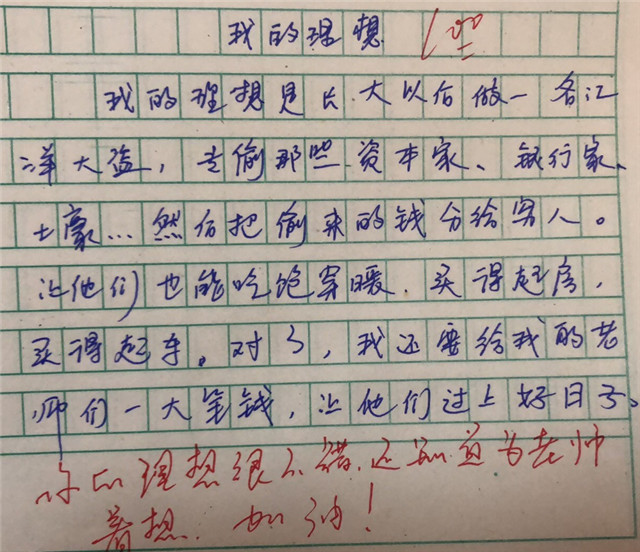 我的理想 100
我的理想是长大以后做一名江
洋大盗，去偷那些资本家、银行家、
土豪…然后把偷来的钱分给穷人。
让他们也能吃饱穿暖．买得起房，
买得起车。对了，我还要给我的老
师们一大笔钱，让他们过上好日子。
你的理想很不错．还知道为老师
着想．加油！